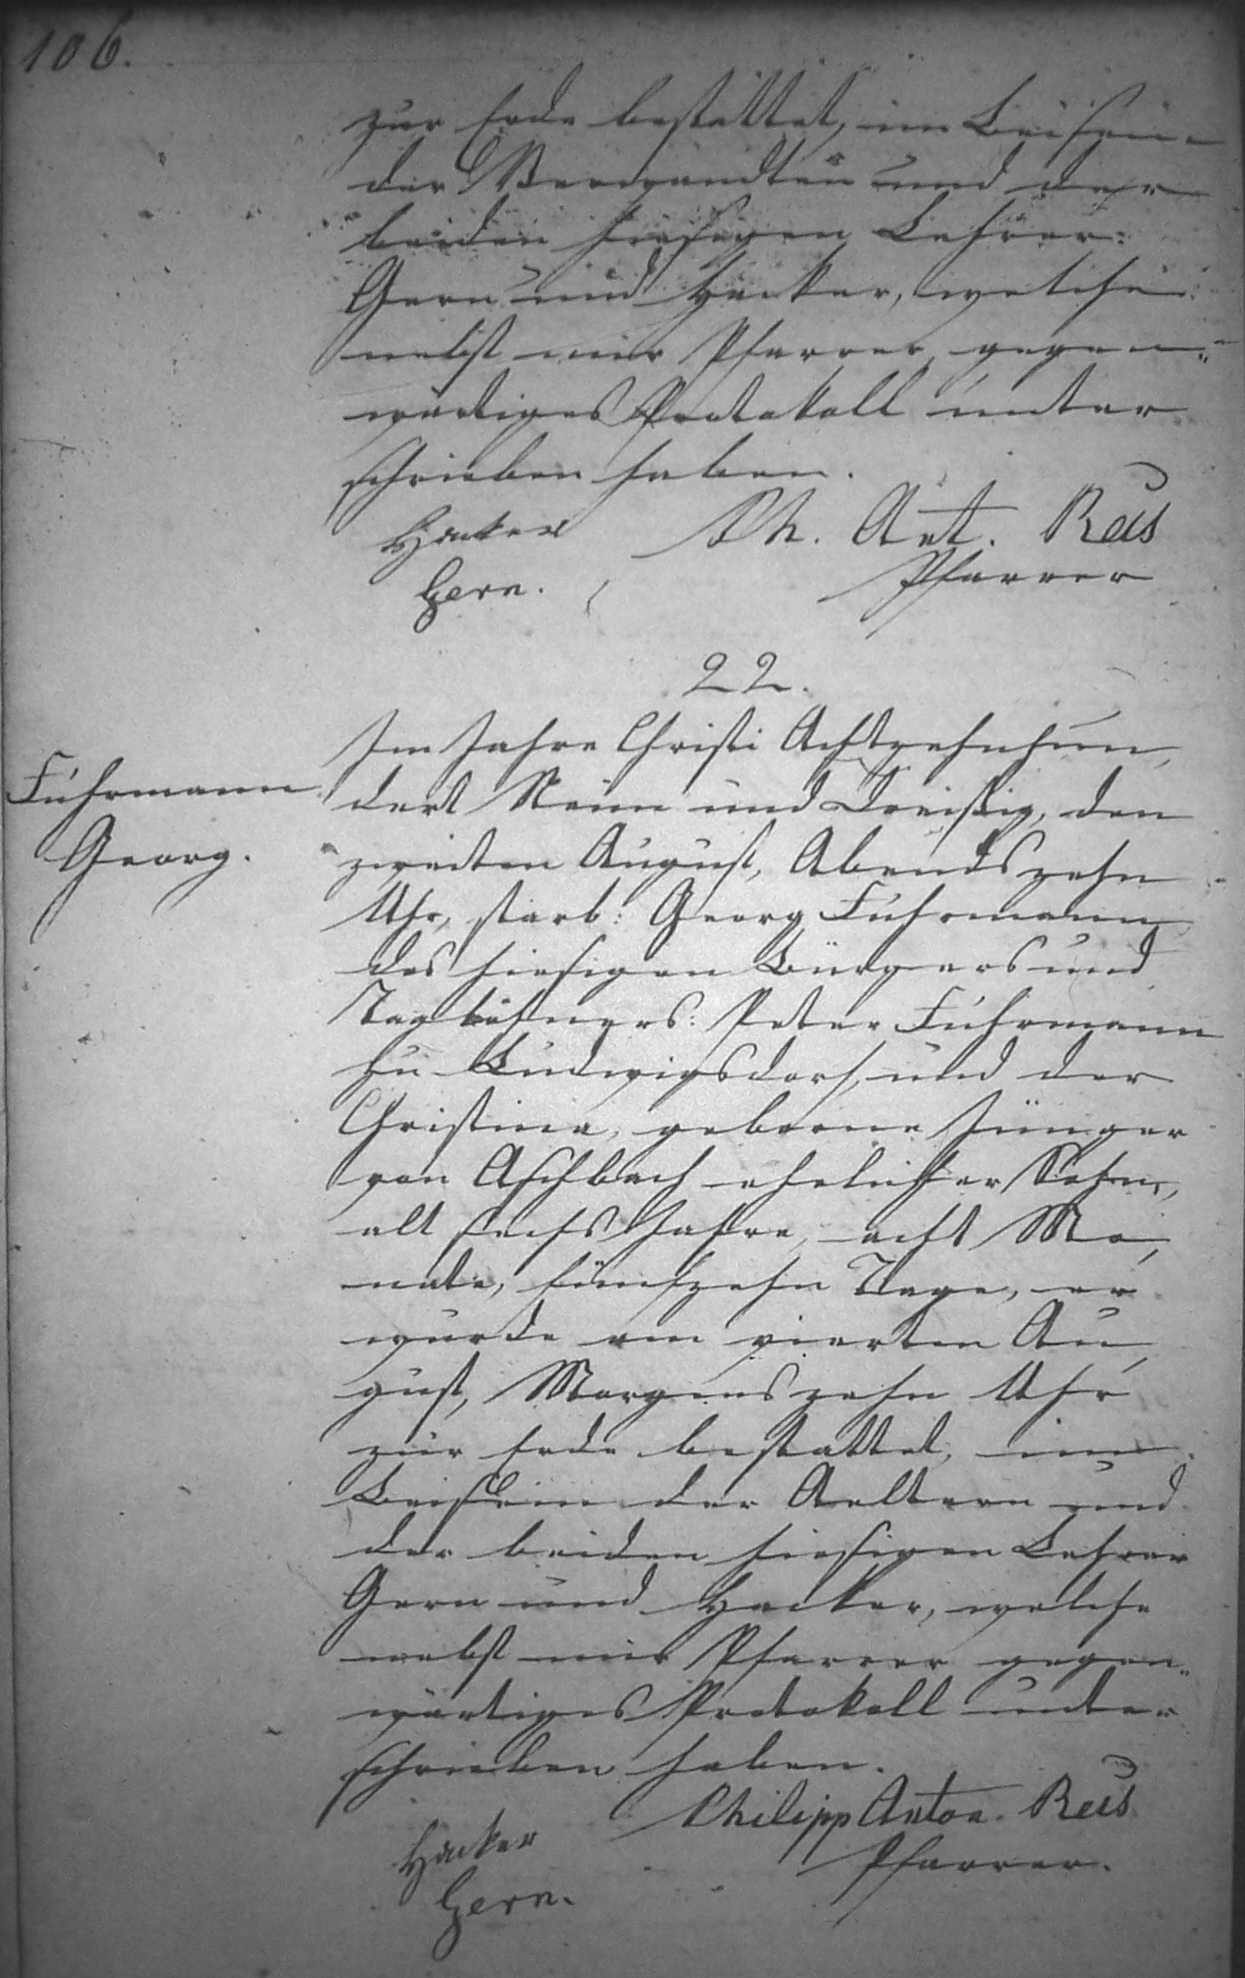 106.
zur Erde bestattet, im Beisein
der Verwandten und der
beiden hiesigen Lehrer:
Gern und Hacker, welche
nebst mir Pfarrer, gegen-
wärtiges Protokoll unter
schrieben haben.
Hacker Ph. Ant. Reus
Gern. Pfarrer
22.
Im Jahre Christi Achtzehnhun,
Fuhrmann
dert Neun und Dreißig, den
Georg.
zweiten August, Abends zehn
Uhr, starb: Georg Fuhrmann
des hiesigen Bürgers und
Taglöhners: Peter Fuhrmann
zu Ludwigsdorf, und der
Christina, geborne Jünger
von Aschbach ehelicher Sohn,
alt sechs Jahre, acht Mo,
nate, fünfzehn Tage, er
wurde am vierten Au,
gust, Morgens zehn Uhr
zur Erde bestattet, im
Beisein der Aeltern und
der beiden hiesigen Lehrer
Gern und Hacker, welche
nebst mir Pfarrer gegen-
wärtiges Protokoll unter
schrieben haben.
Philipp Anton Reus
Hacker Pfarrer.
Gern.